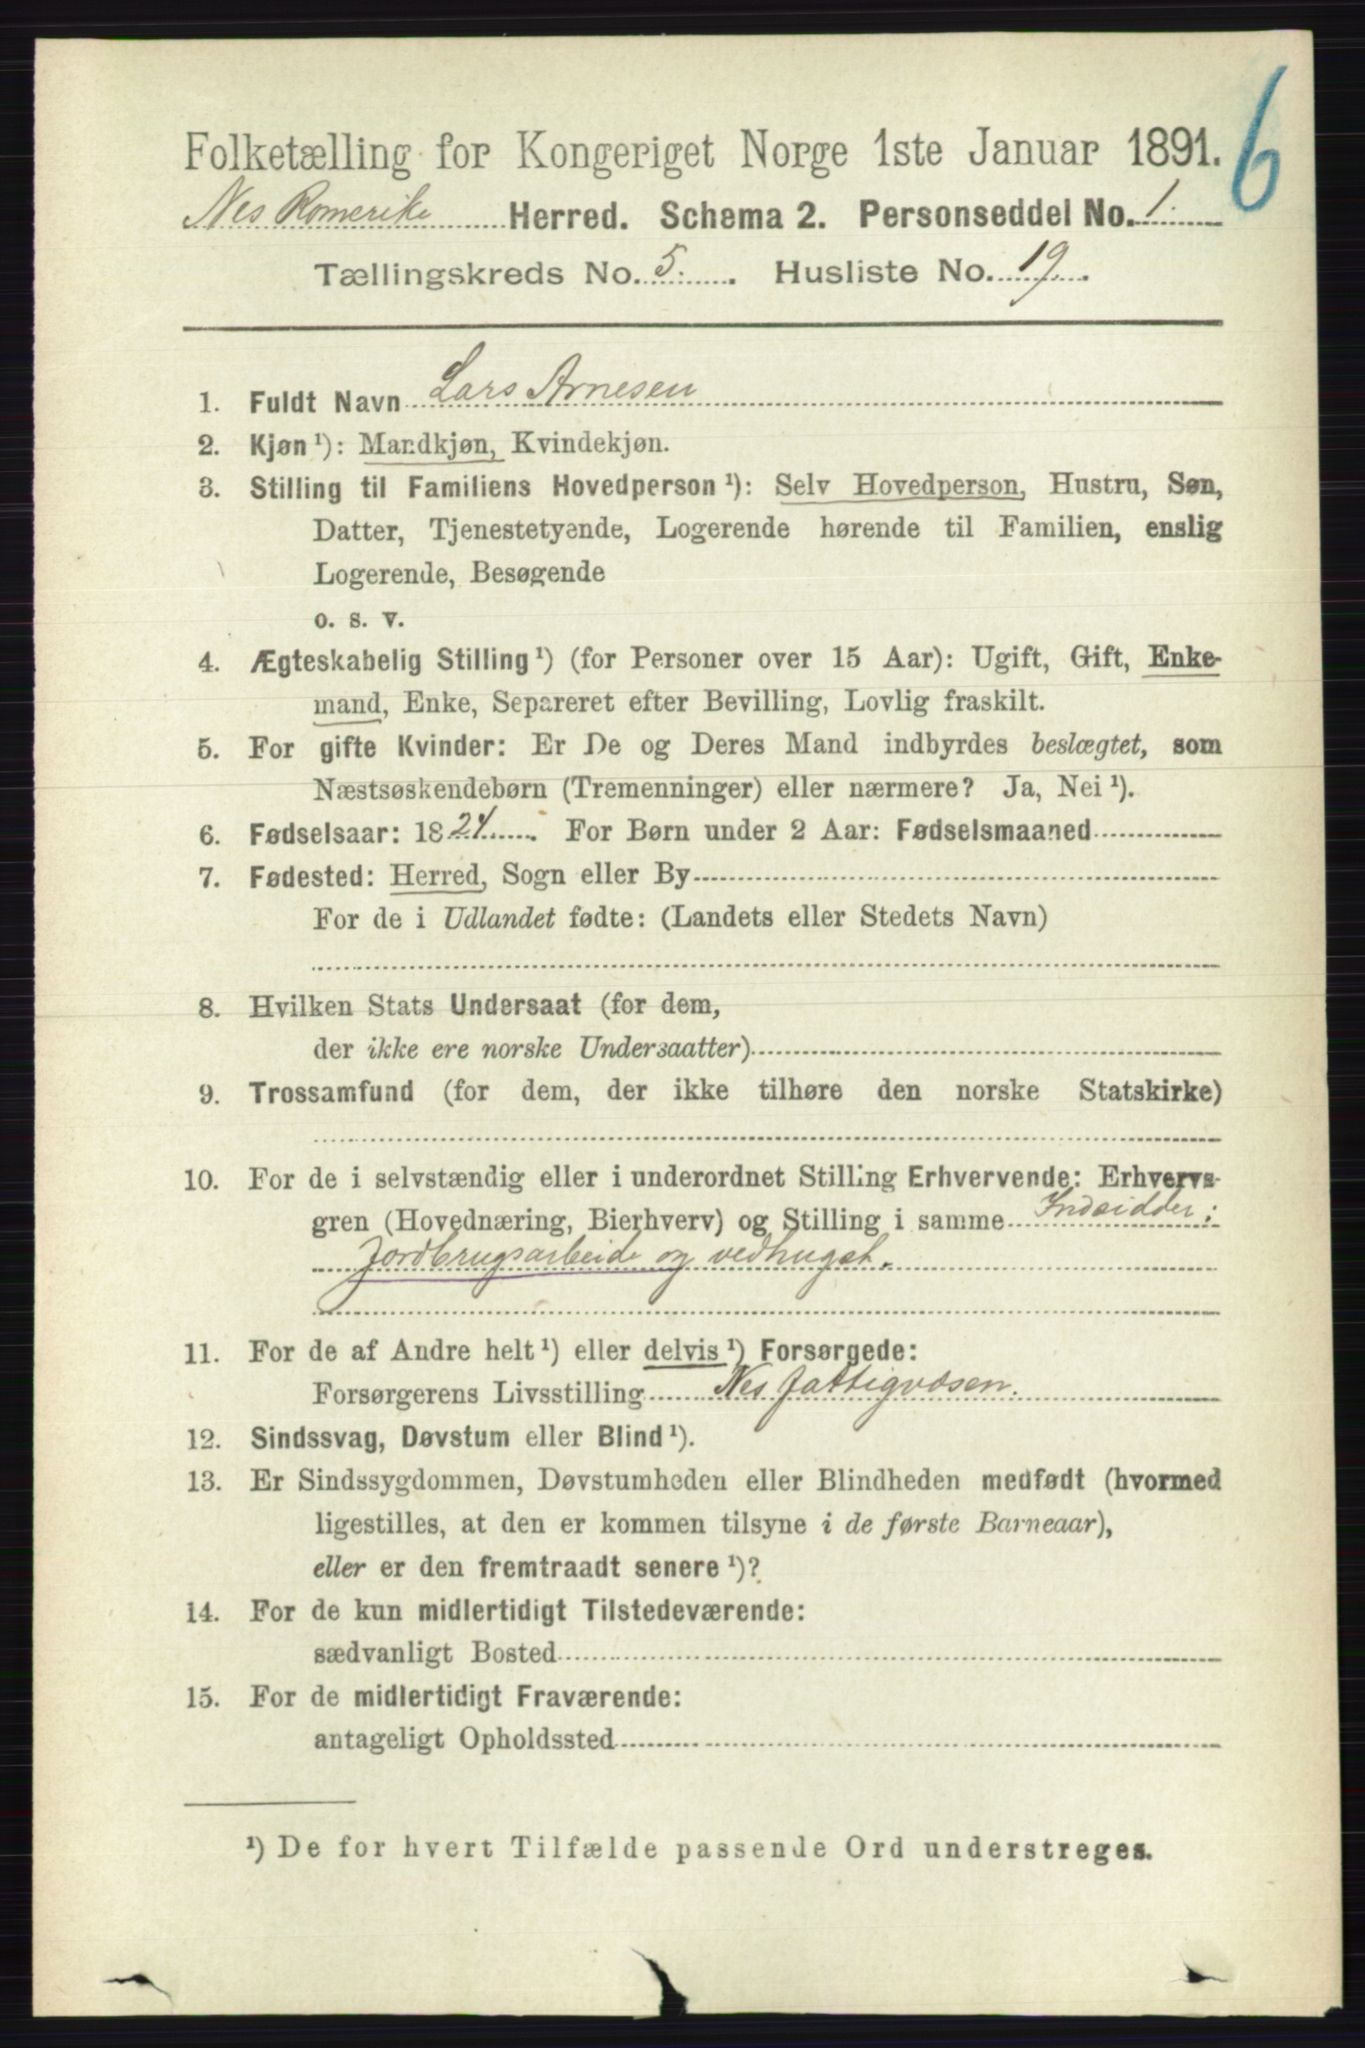 6
Folketælling for Kongeriget Norge 1ste Januar 1891.
Nes Romerike Herred. Schema 2. Personseddel No. 1.
Tællingskreds No. 5. Husliste No. 19.
1. Fuldt Navn Lars Arnesen
2. Kjøn ¹): Mandkjøn, Kvindekjøn.
3. Stilling til Familiens Hovedperson ¹): Selv Hovedperson, Hustru, Søn,
Datter, Tjenestetyende, Logerende hørende til Familien, enslig
Logerende, Besøgende
o. s. v.
4. Ægteskabelig Stilling ¹) (for Personer over 15 Aar): Ugift, Gift, Enke-
mand, Enke, Separeret efter Bevilling, Lovlig fraskilt.
5. For gifte Kvinder: Er De og Deres Mand indbyrdes beslægtet, som
Næstsøskendebørn (Tremenninger) eller nærmere? Ja, Nei ¹).
6. Fødselsaar: 1824. For Børn under 2 Aar: Fødselsmaaned
7. Fødested: Herred, Sogn eller By
For de i Udlandet fødte: (Landets eller Stedets Navn)
8. Hvilken Stats Undersaat (for dem,
der ikke ere norske Undersaatter)
9. Trossamfund (for dem, der ikke tilhøre den norske Statskirke)
10. For de i selvstændig eller i underordnet Stilling Erhvervende: Erhvervs-
gren (Hovednæring, Bierhverv) og Stilling i samme Indsidder:
Jordbrugsarbeide og vedhugst.
11. For de af Andre helt ¹) eller delvis ¹) Forsørgede:
Forsørgerens Livsstilling Nes fattigvæsen.
12. Sindssvag, Døvstum eller Blind ¹).
13. Er Sindssygdommen, Døvstumheden eller Blindheden medfødt (hvormed
ligestilles, at den er kommen tilsyne i de første Barneaar),
eller er den fremtraadt senere ¹)?
14. For de kun midlertidigt Tilstedeværende:
sædvanligt Bosted
15. For de midlertidigt Fraværende:
antageligt Opholdssted
¹) De for hvert Tilfælde passende Ord understreges.